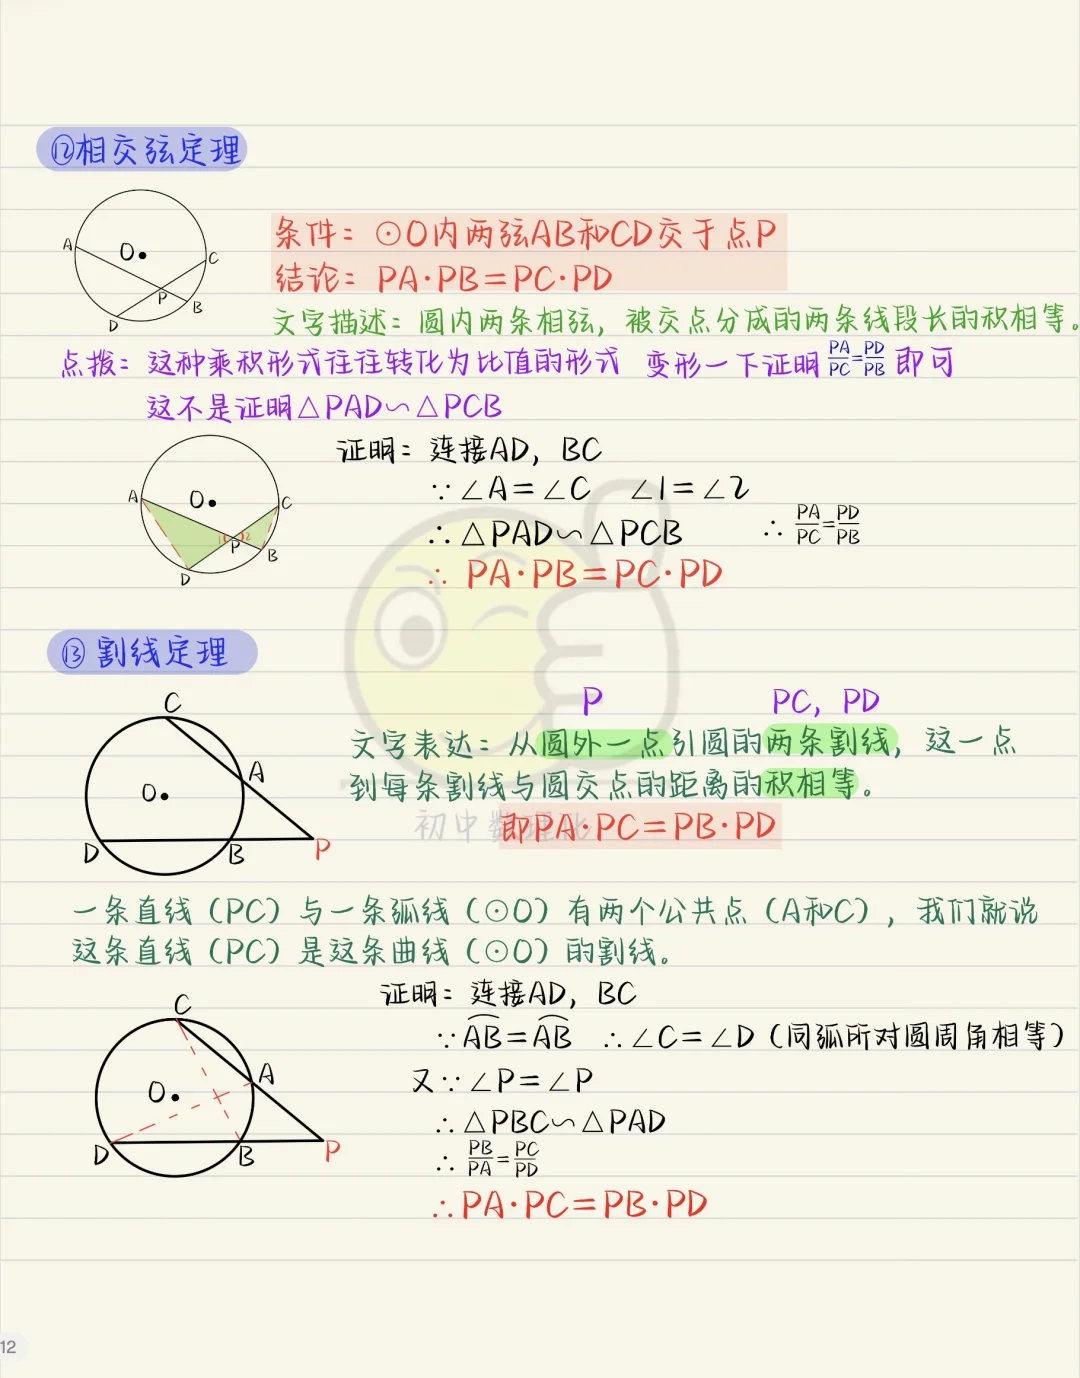 ⑫相交弦定理
A O C P B D
条件：⊙O内两弦AB和CD交于点P
结论：PA·PB=PC·PD
文字描述：圆内两条相弦，被交点分成的两条线段长的积相等。
点拨：这种乘积形式往往转化为比值的形式 变形一下证明PA/PC=PD/PB即可
这不是证明△PAD∽△PCB
A O C 1 2 P B D
证明：连接AD，BC
∵∠A=∠C ∠1=∠2
∴△PAD∽△PCB ∴PA/PC=PD/PB
∴ PA·PB=PC·PD
⑬割线定理
C A O D B P
P PC，PD
文字表达：从圆外一点引圆的两条割线，这一点
到每条割线与圆交点的距离的积相等。
即PA·PC=PB·PD
初中数理化
一条直线（PC）与一条弧线（⊙O）有两个公共点（A和C），我们就说
这条直线（PC）是这条曲线（⊙O）的割线。
C A O D B P
证明：连接AD，BC
∵AB=AB ∴∠C=∠D（同弧所对圆周角相等）
又∵∠P=∠P
∴△PBC∽△PAD
∴PB/PA=PC/PD
∴PA·PC=PB·PD
12